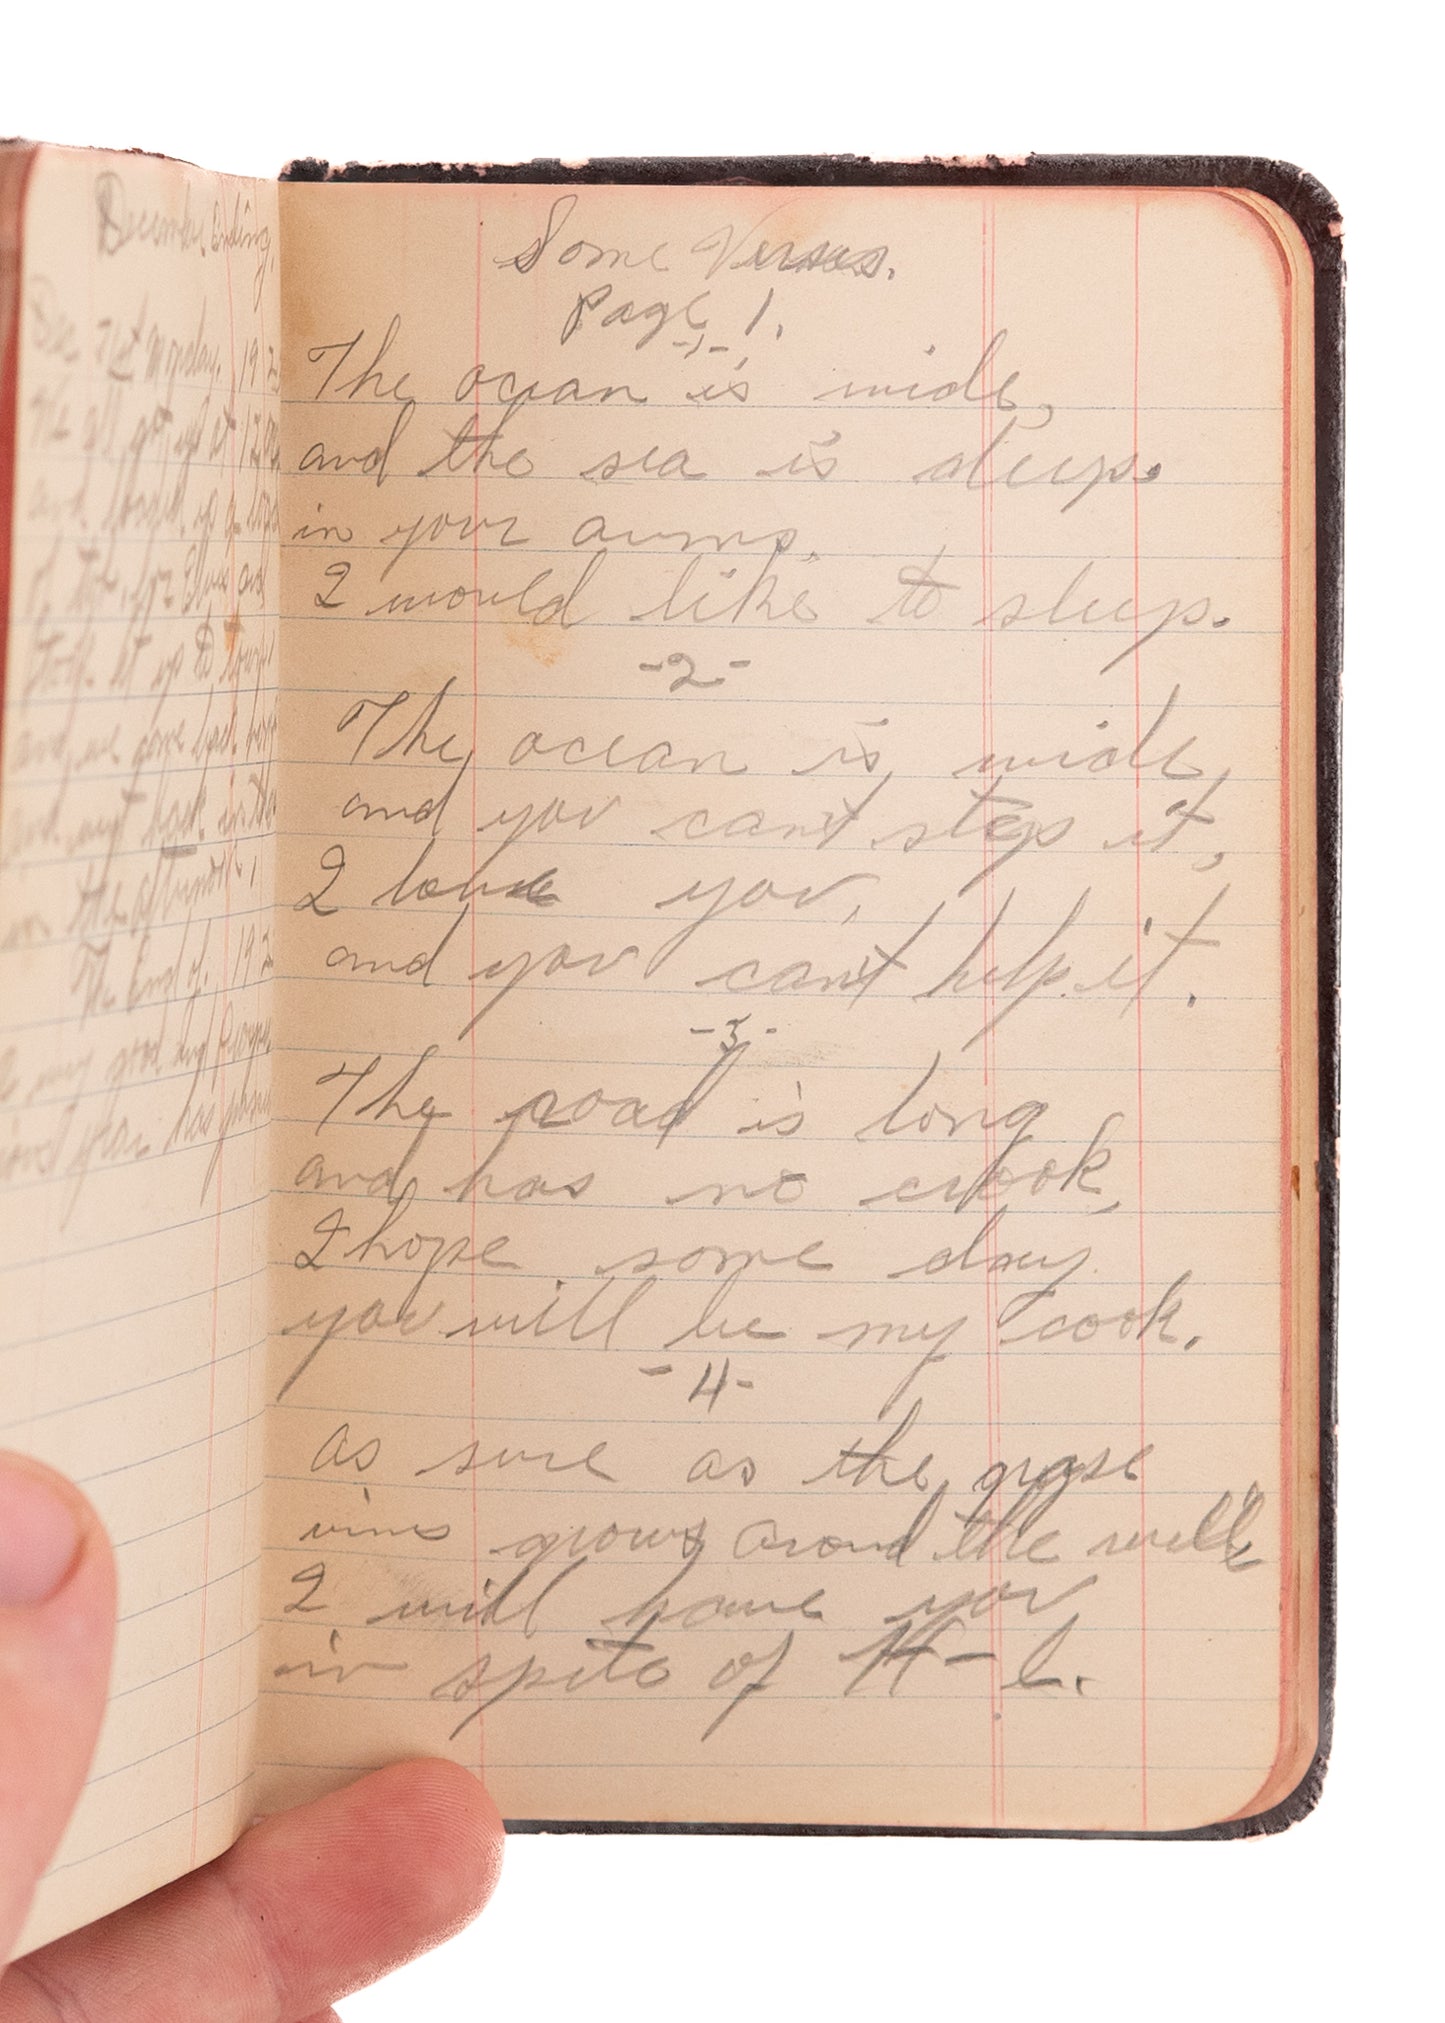 December. Ending.
Dec 31st Monday. 192
We all got up at 12.00
and up a
of the, for and
took it up to
and we come back
and went back in the
in the afternoon,
The End of. 192
year has
Some Verses.
Page 1.
-1-
The ocean is wide,
and the sea is deep.
in your arms,
I would like to sleep.
-2-
The ocean is wide,
and you can't step it,
I love you,
and you can't help it.
-3-
The road is long
and has no crook,
I hope some day
you will be my cook.
-4-
as sure as the grape
vines grows around the well
I will have you
in spite of H-l.